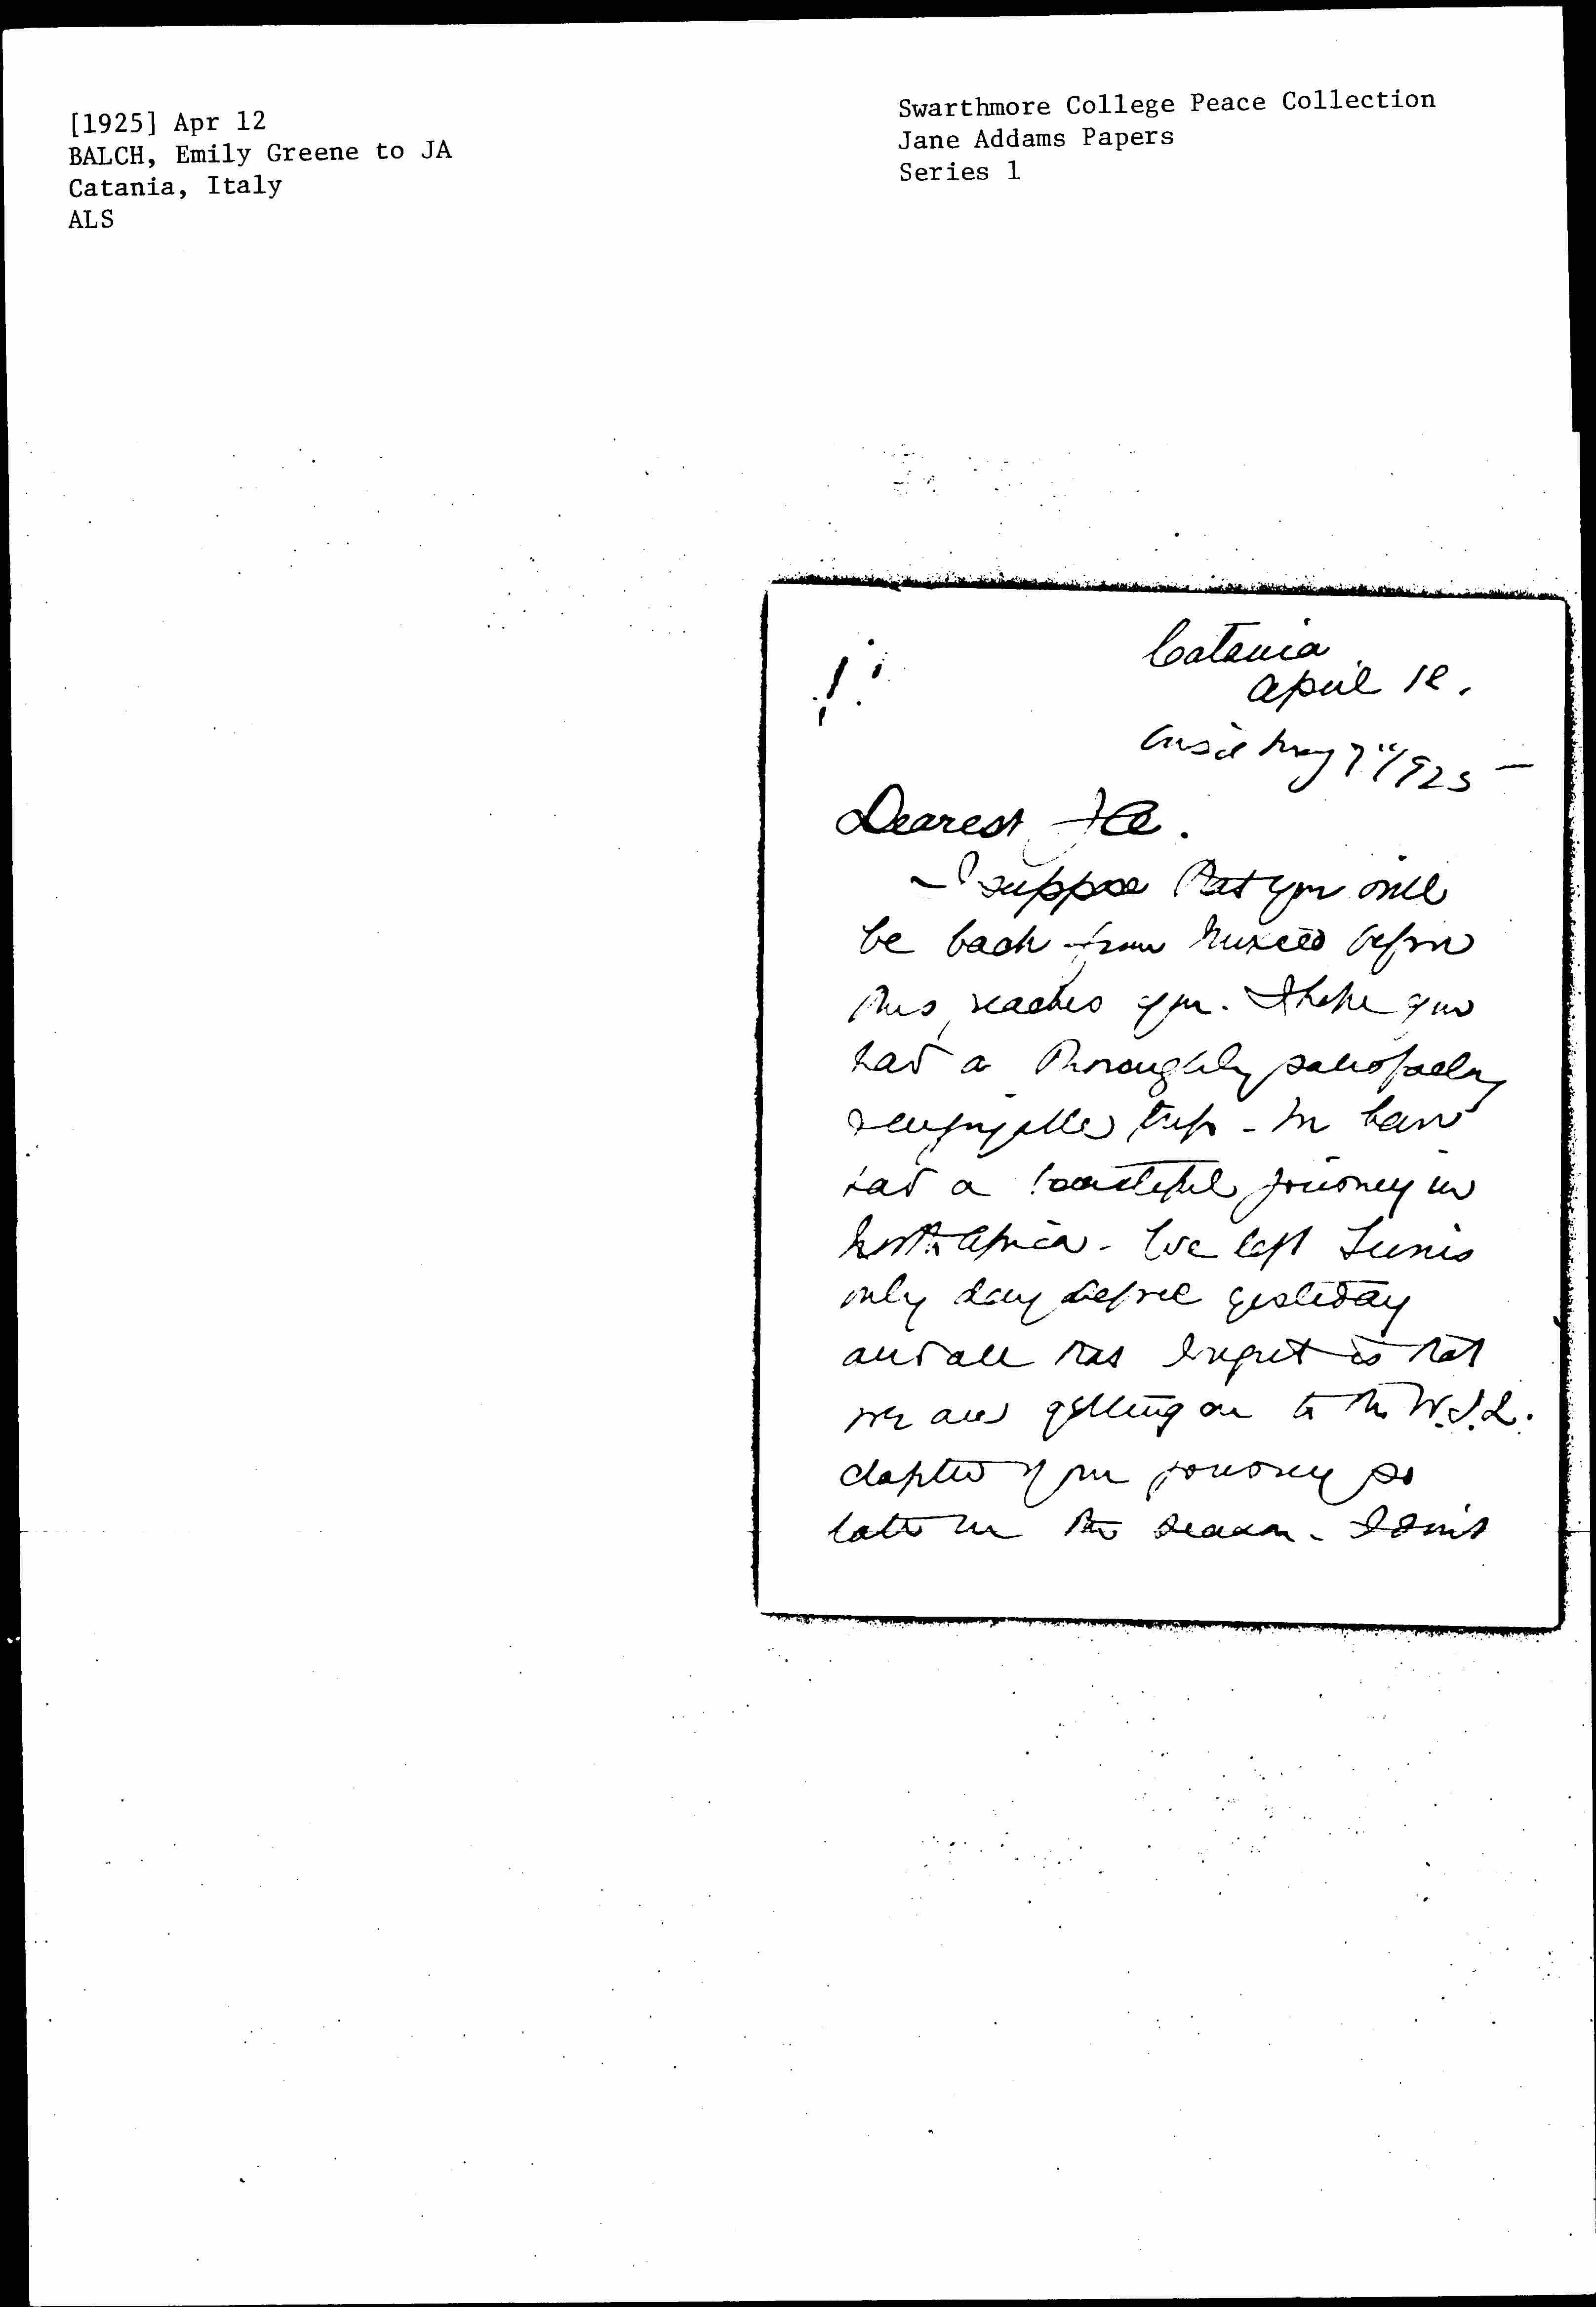 [1925] Apr 12
BALCH, Emily Greene to JA
Catania, Italy
ALS
Swarthmore College Peace Collection
Jane Addams Papers
Series 1
Catania
April 12.
May 7"/925 –
Dearest JA.
– I suppose that you will
be back from Mexico before
this reaches you. I hope you
had a thoroughly satisfactory
& enjoyable trip – We have
had a beautiful journey in
North Africa – We left Tunis
only day before yesterday
and all that I regret is that
we are getting on to the W.I.L.
chapter of our journey so
late in the season – I don't